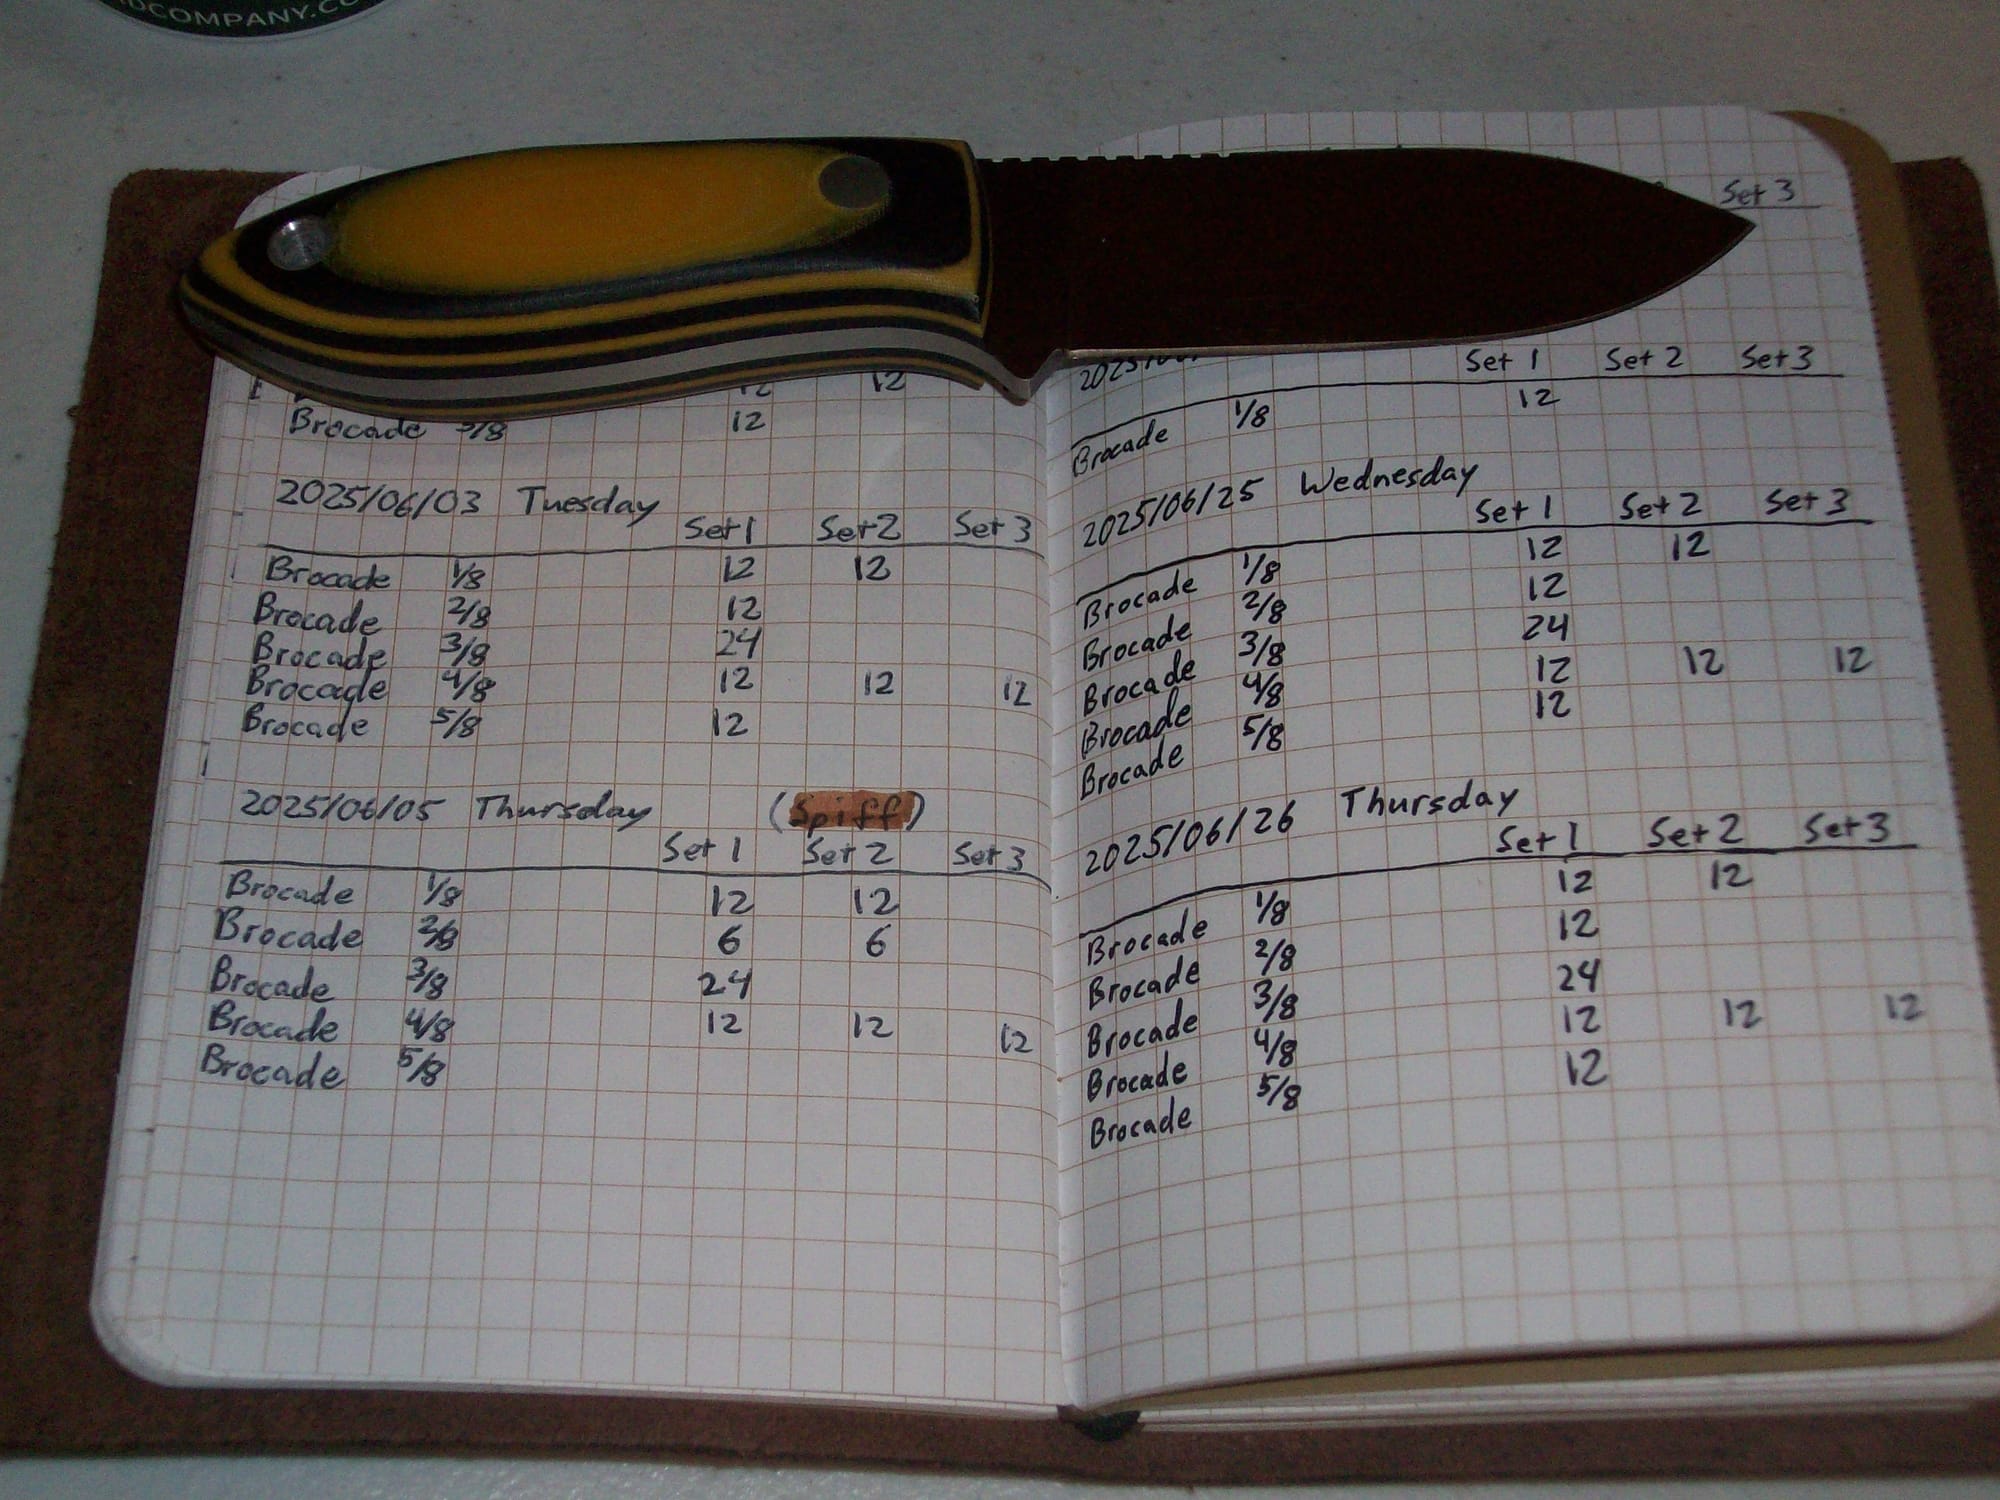 COMPANY.CO
12 12
Brocade 5/8 12
2025/06/03 Tuesday
Set 1 Set 2 Set 3
Brocade 1/8 12 12
Brocade 2/8 12
Brocade 3/8 24
Brocade 4/8 12 12 12
Brocade 5/8 12
2025/06/05 Thursday (Spiff)
Set 1 Set 2 Set 3
Brocade 1/8 12 12
Brocade 2/8 6 6
Brocade 3/8 24
Brocade 4/8 12 12 12
Brocade 5/8
Set 3
Set 1 Set 2 Set 3
Brocade 1/8 12
2025/06/25 Wednesday
Set 1 Set 2 Set 3
Brocade 1/8 12 12
Brocade 2/8 12
Brocade 3/8 24
Brocade 4/8 12 12 12
Brocade 5/8 12
2025/06/26 Thursday
Set 1 Set 2 Set 3
Brocade 1/8 12 12
Brocade 2/8 12
Brocade 3/8 24
Brocade 4/8 12 12 12
Brocade 5/8 12